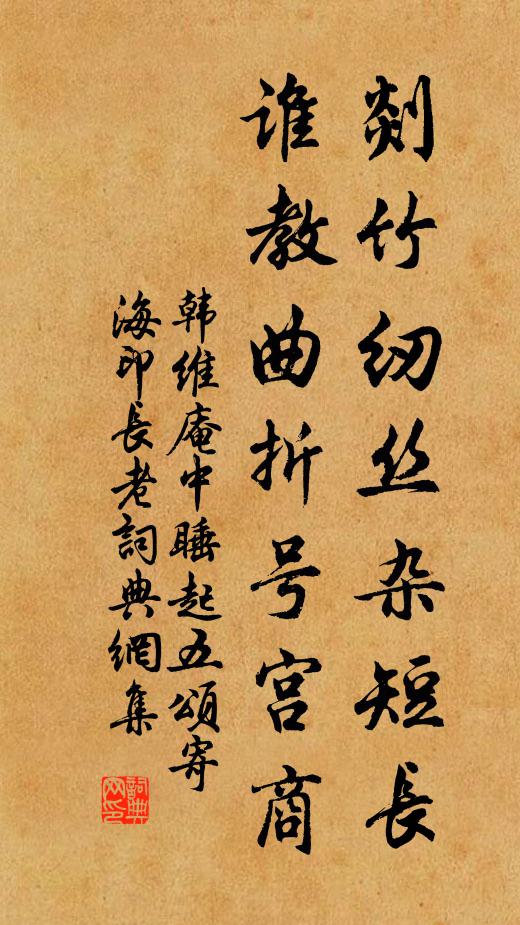 剡竹纫丝杂短長
谁教曲折号宫商
韩维庵中睡起五頌寄
海印長老詞典網集
詞典网印